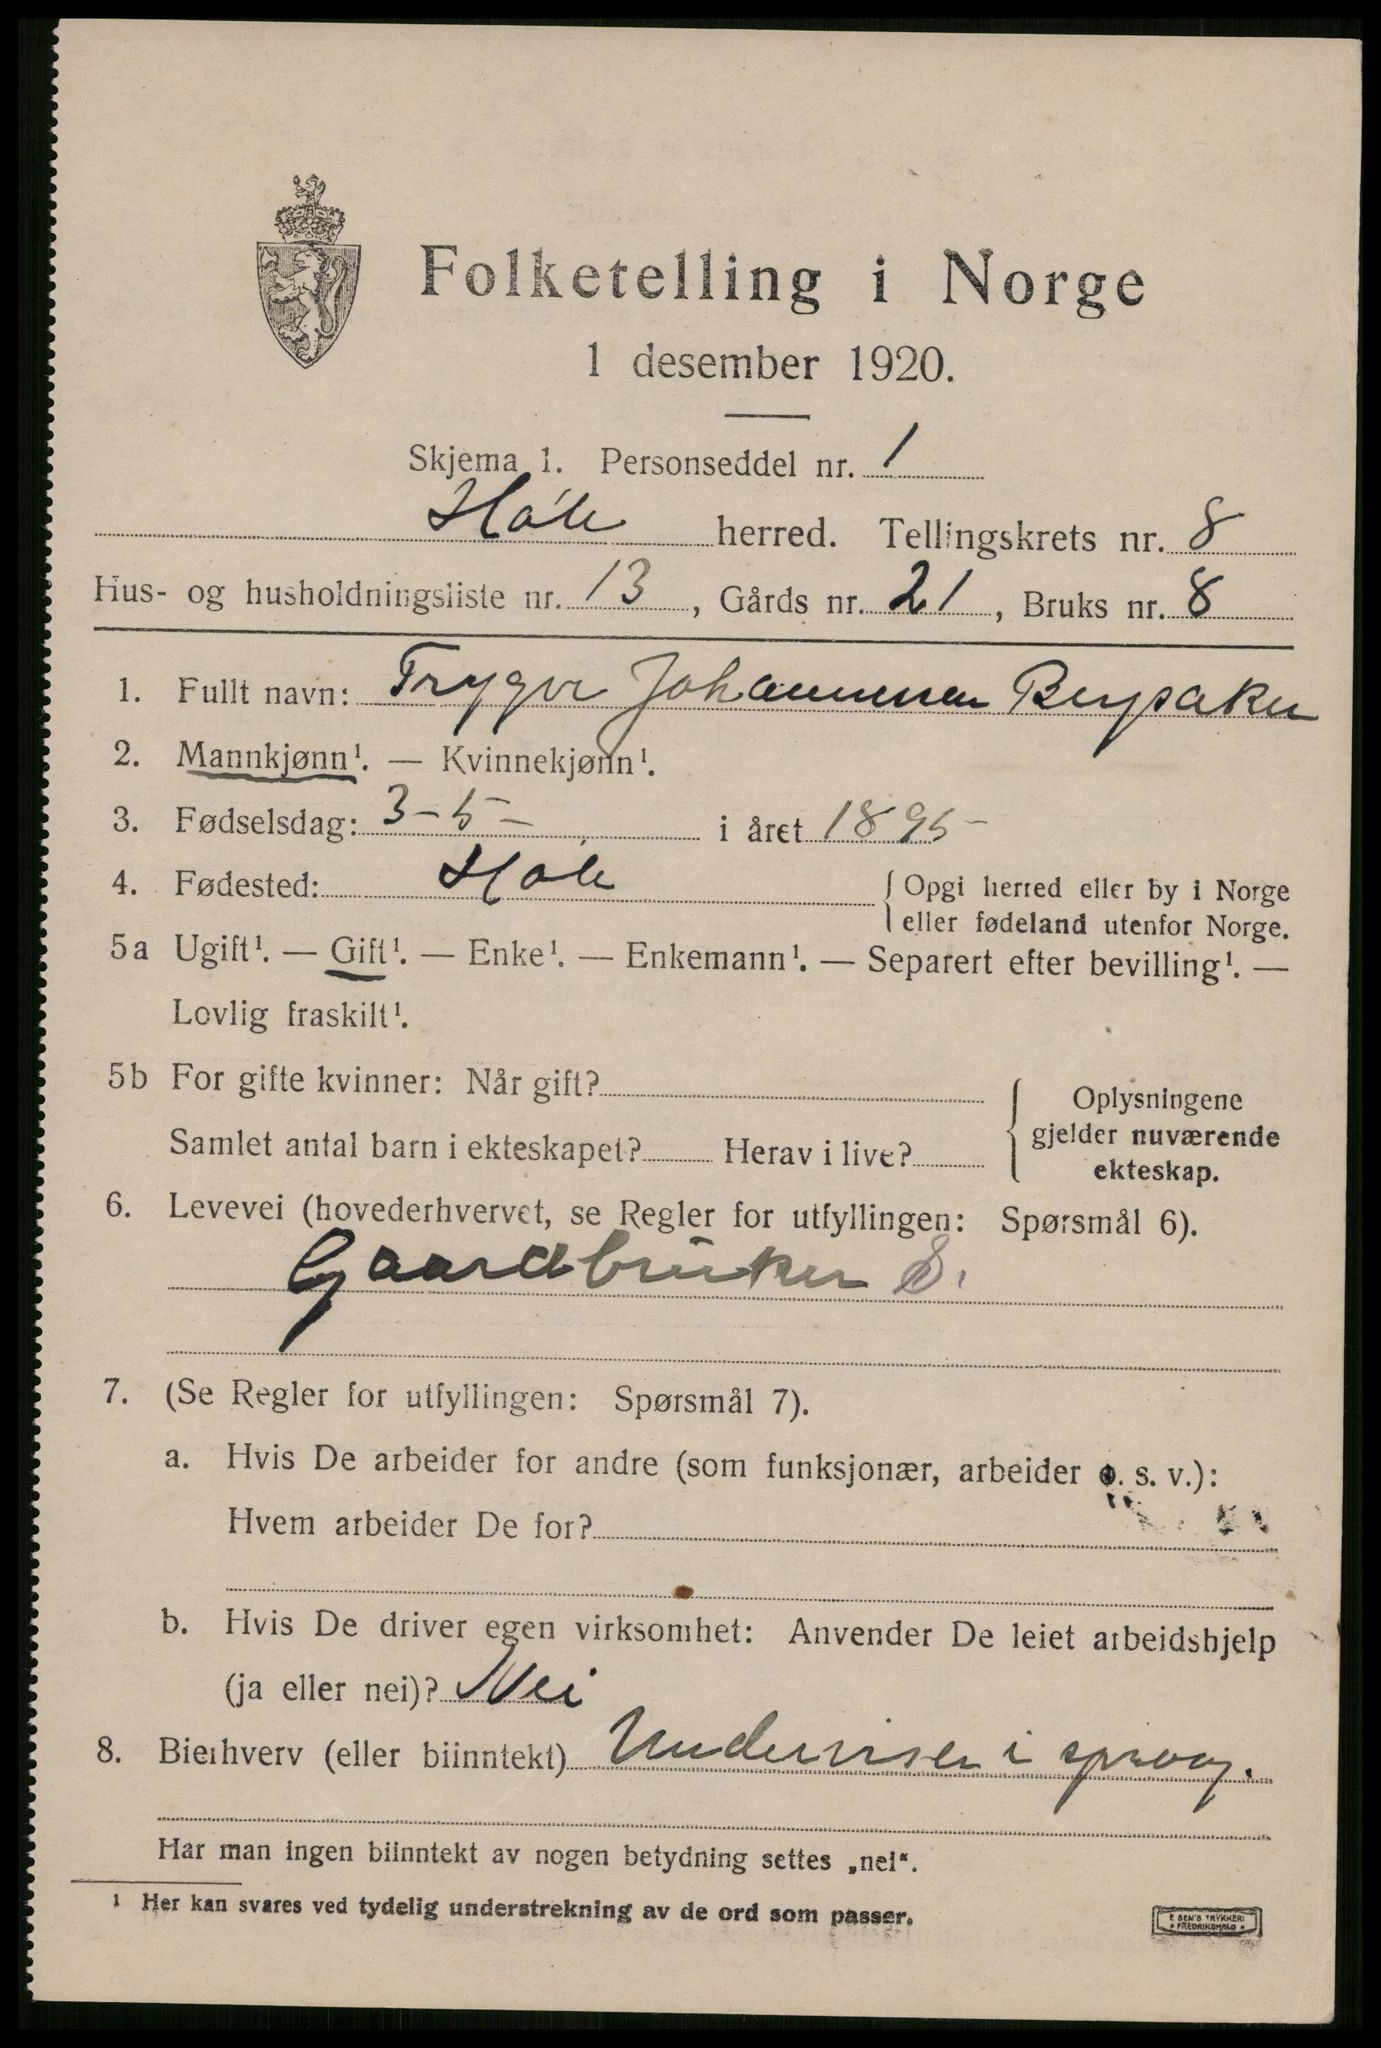 Folketelling i Norge
1 desember 1920.
Skjema 1. Personseddel nr. 1
Hole herred. Tellingskrets nr. 8
Hus- og husholdningsliste nr. 13, Gårds nr. 21, Bruks nr. 8
1. Fullt navn: Trygve Johannessen Bergsaker
2. Mannkjønn¹. — Kvinnekjønn¹.
3. Fødselsdag: 3-5- i året 1895-
4. Fødested: Hole { Opgi herred eller by i Norge
eller fødeland utenfor Norge.
5a Ugift¹. — Gift¹. — Enke¹. — Enkemann¹. — Separert efter bevilling¹. —
Lovlig fraskilt¹.
5b For gifte kvinner: Når gift? { Oplysningene
gjelder nuværende
Samlet antal barn i ekteskapet? Herav i live?
ekteskap.
6. Levevei (hovederhvervet, se Regler for utfyllingen: Spørsmål 6).
Gaardbruker S.
7. (Se Regler for utfyllingen: Spørsmål 7).
a. Hvis De arbeider for andre (som funksjonær, arbeider o. s. v.):
Hvem arbeider De for?
b. Hvis De driver egen virksomhet: Anvender De leiet arbeidshjelp
(ja eller nei)? Nei
8. Bierhverv (eller biinntekt) Underviser i sprog.
Har man ingen biinntekt av nogen betydning settes „nei“.
¹ Her kan svares ved tydelig understrekning av de ord som passer.
E SEM'S TRYKKERI
FREDRIKSHALD